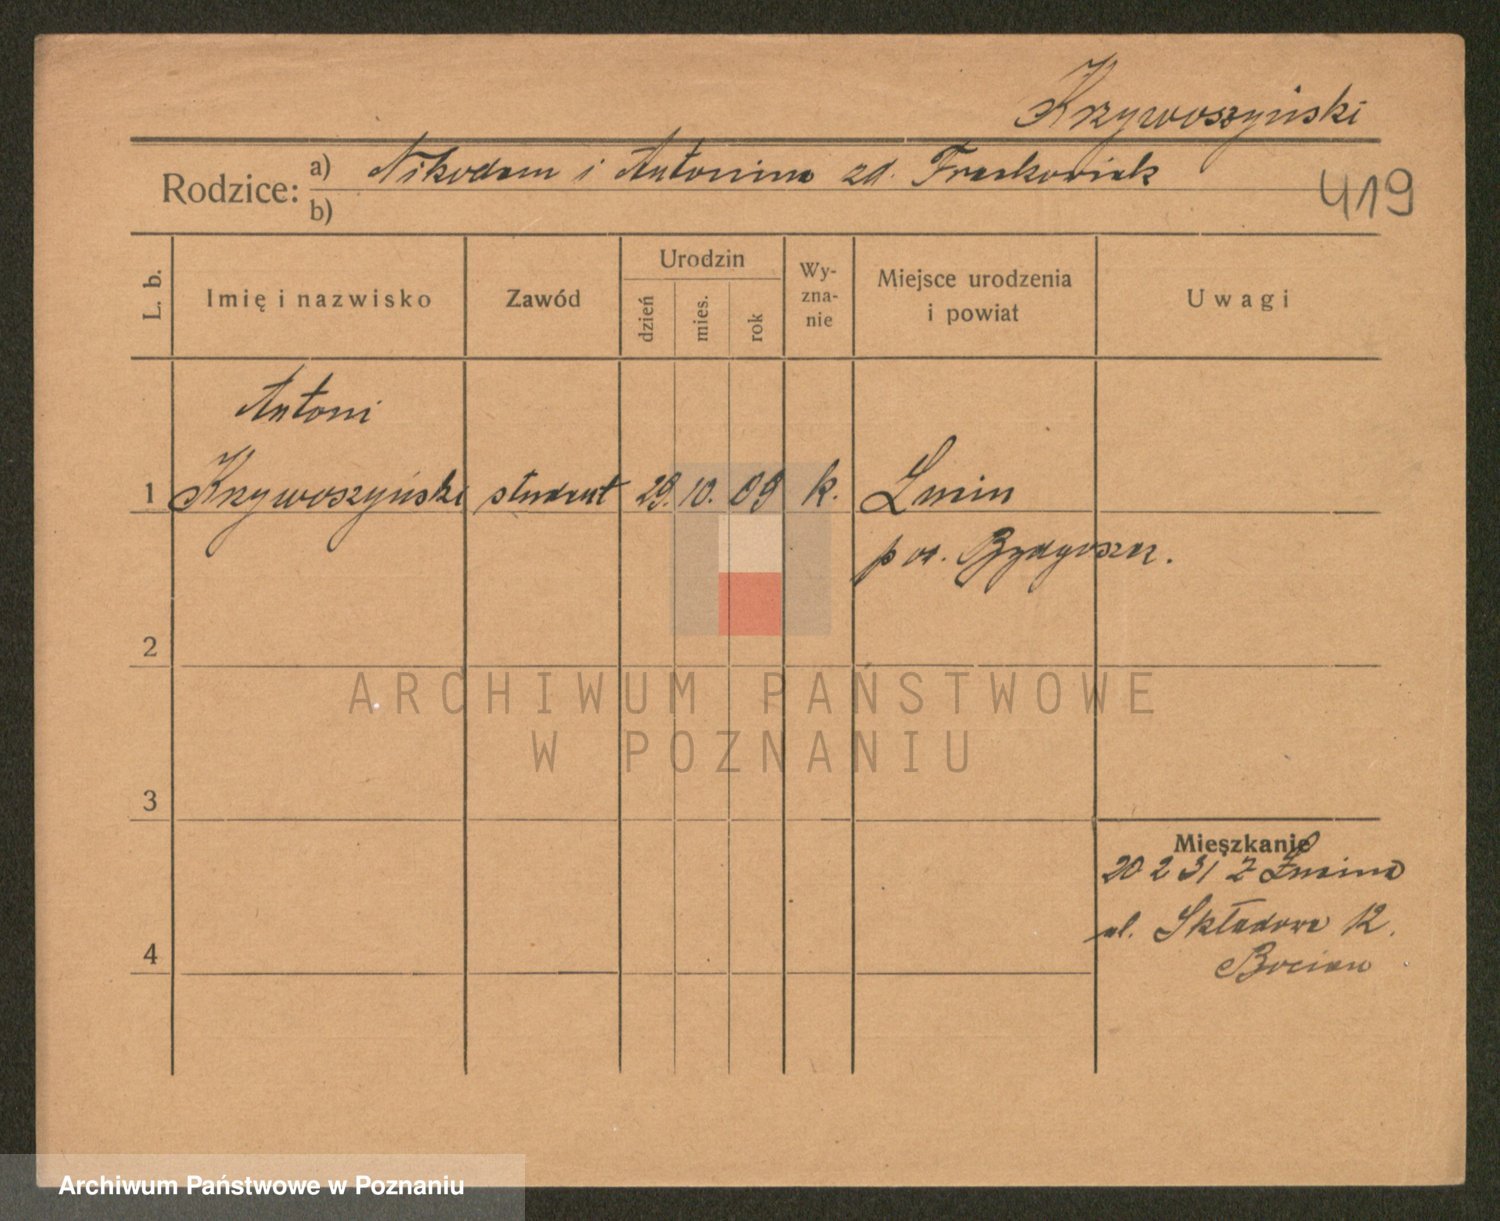 Krzywoszyński
Rodzice: a) Nikodem i Antonina zd. Fraskowiak
b)
419
L. b.
Imię i nazwisko
Zawód
Urodzin
dzień
mies.
rok
Wy-
zna-
nie
Miejsce urodzenia
i powiat
Uwagi
Antoni
1 Krzywoszyński student 29. 10. 09 k. Żnin
pow. Bydgoszcz.
2
ARCHIWUM PAŃSTWOWE
W POZNANIU
3
Mieszkanie
20 2 31 z Żnina
ul. Składowa 12.
4
Bocian
Archiwum Państwowe w Poznaniu